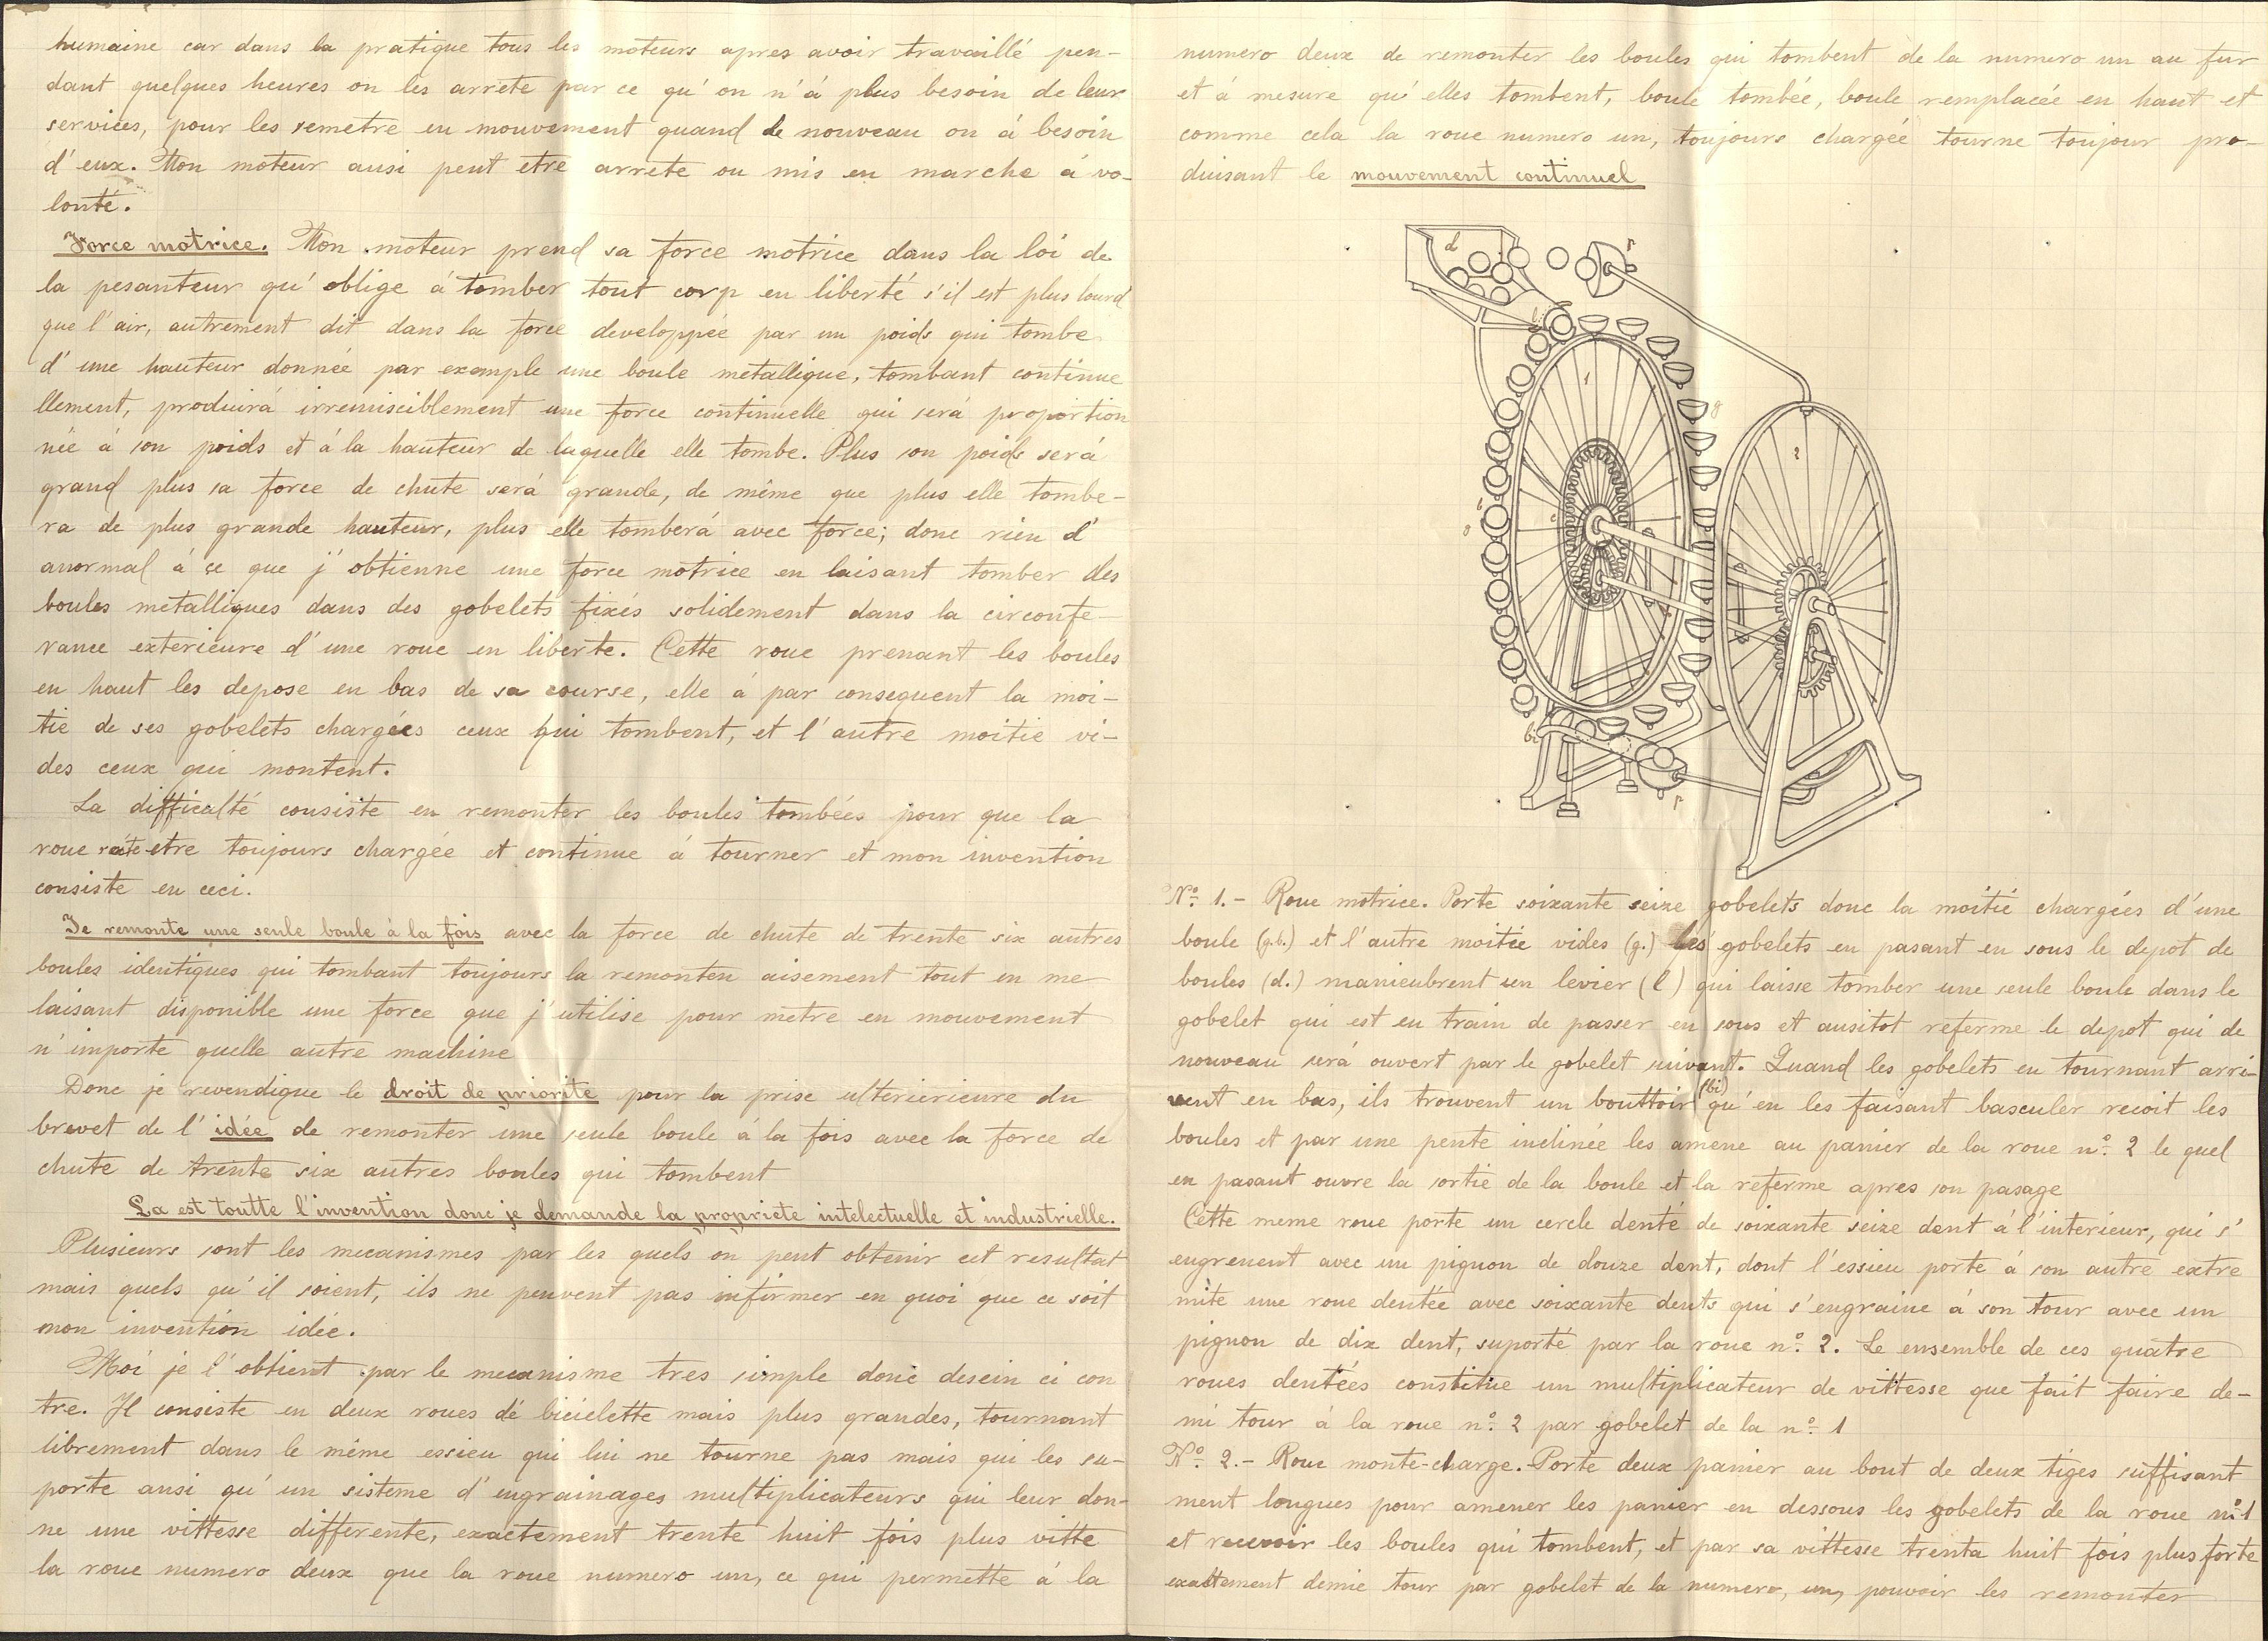 humaine car dans la pratique tous les moteurs apres avoir travaillé pen-
dant quelques heures on les arrete par ce qu'on n'á plus besoin de leur
services, pour les remetre en mouvement quand de nouveau on á besoin
d'eux. Mon moteur ausi peut etre arrete ou mis en marche á vo-
lonté.
Force motrice. Mon moteur prend sa force motrice dans la loi de
la pesanteur qu'oblige á tomber tout corp en liberté s'il est plus lourd
que l'air, autrement dit dans la force developpée par un poids qui tombe
d'une hauteur donnée par exemple une boule metallique, tombant continue
llement, produirá irremisciblement une force continuelle qui será proportion
née á son poids et á la hauteur de laquelle elle tombe. Plus son poids será
grand plus sa force de chute será grande, de même que plus elle tombe-
ra de plus grande hauteur, plus elle tomberá avec force; donc rien d'
anormal á ce que j'obtienne une force motrice en laisant tomber des
boules metalliques dans des gobelets fixés solidement dans la circonfe-
rance exterieure d'une roue en liberte. Cette roue prenant les boules
en haut les depose en bas de sa course, elle á par consequent la moi-
tie de ses gobelets chargées ceux qui tombent, et l'autre moitie vi-
des ceux qui montent.
La difficalté consiste en remonter les boules tombées pour que la
roue etre toujours chargée et continue á tourner et mon invention
consiste en ceci.
Je remonte une seule boule à la fois avec la force de chute de trente six autres
boules identiques qui tombant toujours la remonten aisement tout en me
laisant disponible une force que j'utilise pour mètre en mouvement
n'importe quelle autre machine
Donc je revendique le droit de priorite pour la prise ulterierieure du
brevet de l'idée de remonter une seule boule á la fois avec la force de
chute de trente six autres boules qui tombent
La est toutte l'invention donc je demande la propriete intelectuelle et industrielle.
Plusieurs sont les mecanismes par les quels on peut obtenir cet resultat
mais quels qu'il soient, ils ne peuvent pas infirmer en quoi que ce soit
mon invention idée.
Moi je l'obtient par le mecanisme tres simple donc desein ci con
tre. Il consiste en deux roues dé biciclette mais plus grandes, tournant
librement dans le même essieu qui lui ne tourne pas mais qui les su-
porte ansi qu'un sisteme d'engrainages multiplicateurs qui leur don-
ne une vittesse differente, exactement trente huit fois plus vitte
la roue numero deux que la roue numero un, ce qui permette á la
numero deux de remonter les boules qui tombent de la numero un au fur
et á mesure qu'elles tombent, boule tombée, boule remplacée en haut et
comme cela la roue numero un, toujours chargée tourne toujour pro-
duisant le mouvement continuel
d
p
l
1
g
2
b
g
c
bi
p
Nº 1.- Roue motrice. Porte soixante seize gobelets donc la moitié chargées d'une
boule (g.b.) et l'autre moitée vides (g.) les gobelets en pasant en sous le depot de
boules (d.) manieubrent un levier (l) qui laisse tomber une seule boule dans le
gobelet qui est en train de passer en sous et ausitot referme le depot qui de
nouveau será ouvert par le gobelet suivant. Quand les gobelets en tournant arri-
vent en bas, ils trouvent un bouttoir (bi) qu'en les faisant basculer recoit les
boules et par une pente inclinée les amene au panier de la roue nº 2 le quel
en pasant ouvre la sortie de la boule et la referme apres son pasage
Cette meme roue porte un cercle denté de soixante seize dent á l'interieur, qui s'
engrenent avec un pignon de douze dent, dont l'essieu porte á son autre extre
mite une roue dentée avec soixante dents qui s'engraine á son tour avec un
pignon de dix dent, suporté par la roue nº 2. Le ensemble de ces quatre
roues dentées constitue un multiplicateur de vittesse que fait faire de-
mi tour á la roue nº 2 par gobelet de la nº 1
Nº 2.- Roue monte-charge. Porte deux panier au bout de deux tiges suffisant
ment longues pour amener les panier en dessous les gobelets de la roue nº 1
et recevoir les boules qui tombent, et par sa vittesse trenta huit fois plus forte
exactement demie tour par gobelet de la numero, un, pouvoir les remonter